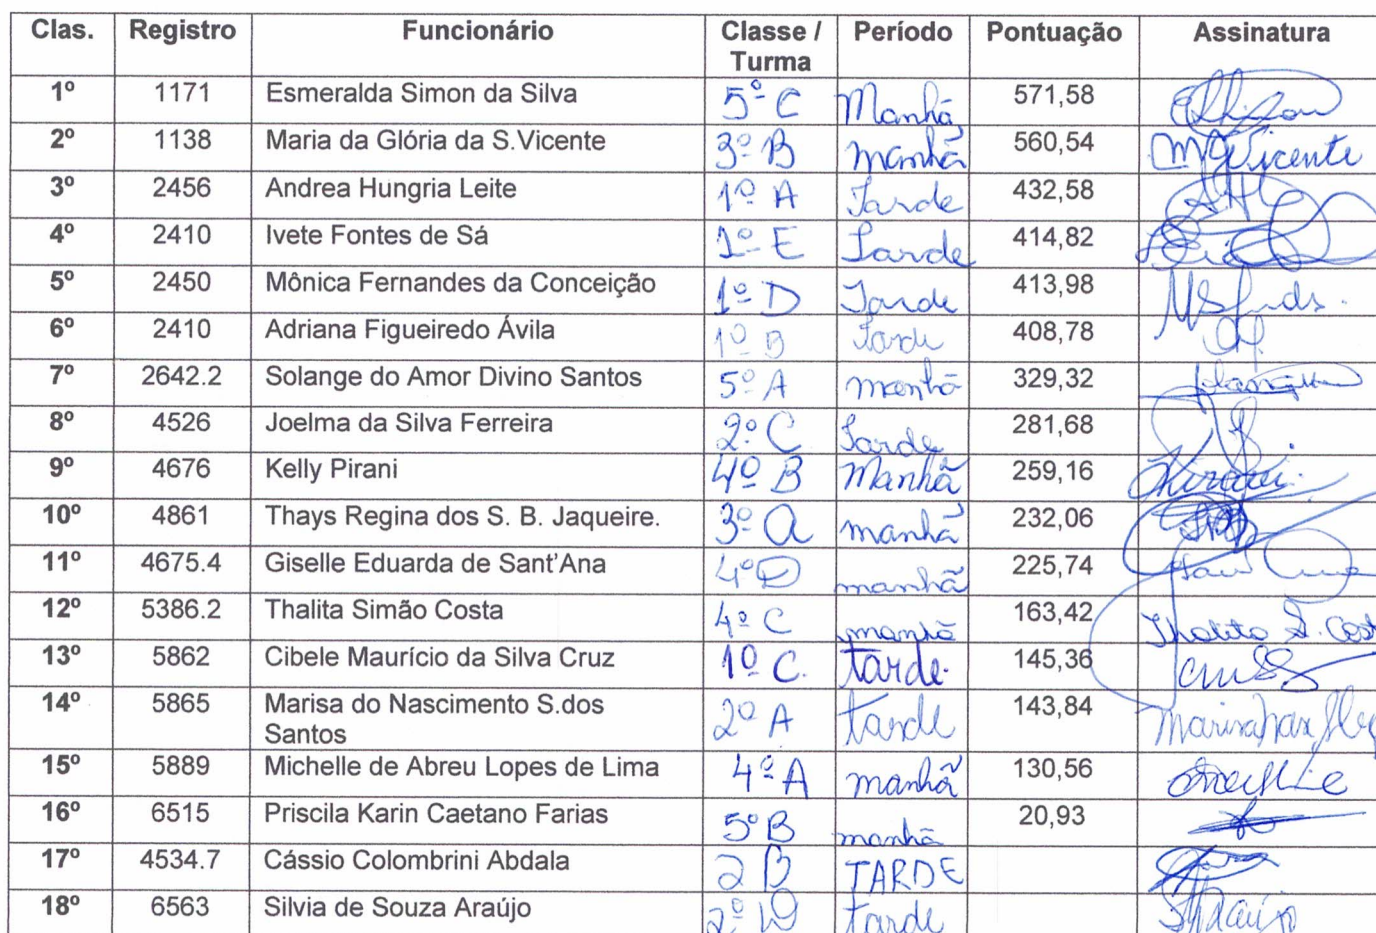 Clas. Registro Funcionário Classe / Turma Período Pontuação Assinatura
1º 1171 Esmeralda Simon da Silva 5º C Manhã 571,58
2º 1138 Maria da Glória da S.Vicente 3º B manhã 560,54 MGVicente
3º 2456 Andrea Hungria Leite 1º A Tarde 432,58
4º 2410 Ivete Fontes de Sá 1º E Tarde 414,82
5º 2450 Mônica Fernandes da Conceição 1º D Tarde 413,98
6º 2410 Adriana Figueiredo Ávila 1º B Tarde 408,78
7º 2642.2 Solange do Amor Divino Santos 5º A manhã 329,32
8º 4526 Joelma da Silva Ferreira 2º C Tarde 281,68
9º 4676 Kelly Pirani 4º B Manhã 259,16
10º 4861 Thays Regina dos S. B. Jaqueire. 3º A manhã 232,06
11º 4675.4 Giselle Eduarda de Sant'Ana 4º D manhã 225,74
12º 5386.2 Thalita Simão Costa 4º C manhã 163,42 Thalita S. Cost
13º 5862 Cibele Maurício da Silva Cruz 1º C. tarde. 145,36
14º 5865 Marisa do Nascimento S.dos
Santos 2º A tarde 143,84
15º 5889 Michelle de Abreu Lopes de Lima 4º A manhã 130,56
16º 6515 Priscila Karin Caetano Farias 5º B manhã 20,93
17º 4534.7 Cássio Colombrini Abdala 2 B TARDE
18º 6563 Silvia de Souza Araújo 2º D tarde